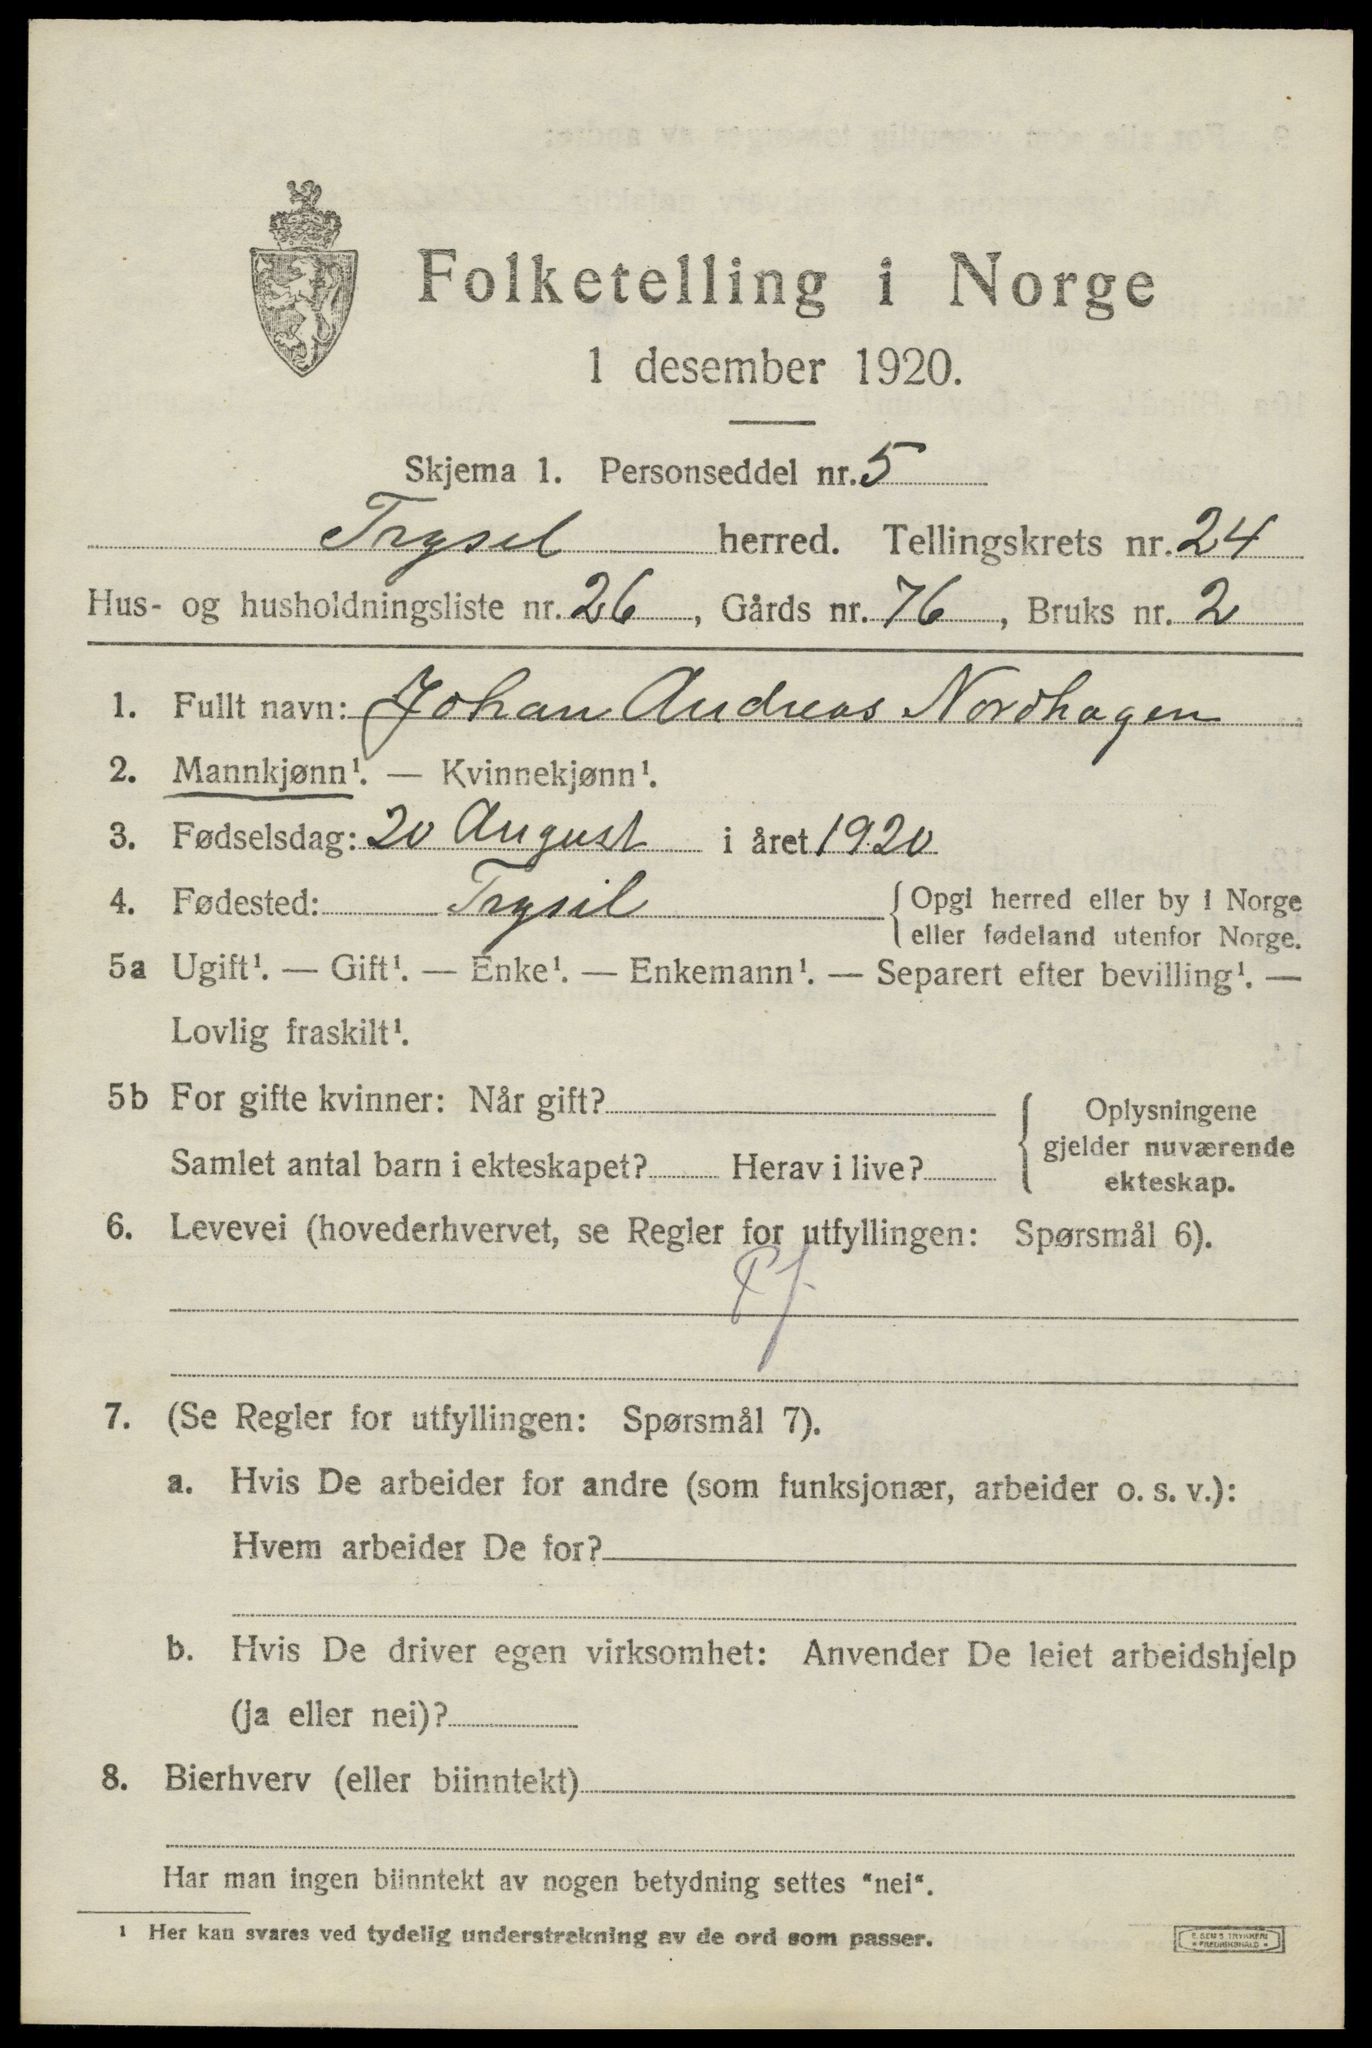 Folketelling i Norge
1 desember 1920.
Skjema 1. Personseddel nr. 5
Trysil herred. Tellingskrets nr. 24
Hus- og husholdningsliste nr. 26, Gårds nr. 76, Bruks nr. 2
1. Fullt navn: Johan Andreas Nordhagen
2. Mannkjønn¹. — Kvinnekjønn¹.
3. Fødselsdag: 20 August i året 1920
4. Fødested: Trysil { Opgi herred eller by i Norge
eller fødeland utenfor Norge.
5a Ugift¹. — Gift¹. — Enke¹. — Enkemann¹. — Separert efter bevilling¹. —
Lovlig fraskilt¹.
5b For gifte kvinner: Når gift? { Oplysningene
gjelder nuværende
Samlet antal barn i ekteskapet? Herav i live?
ekteskap.
6. Levevei (hovederhvervet, se Regler for utfyllingen: Spørsmål 6).
7. (Se Regler for utfyllingen: Spørsmål 7).
a. Hvis De arbeider for andre (som funksjonær, arbeider o. s. v.):
Hvem arbeider De for?
b. Hvis De driver egen virksomhet: Anvender De leiet arbeidshjelp
(ja eller nei)?
8. Bierhverv (eller biinntekt)
Har man ingen biinntekt av nogen betydning settes "nei".
¹ Her kan svares ved tydelig understrekning av de ord som passer.
E. SEM'S TRYKKERI
FREDRIKSHALD